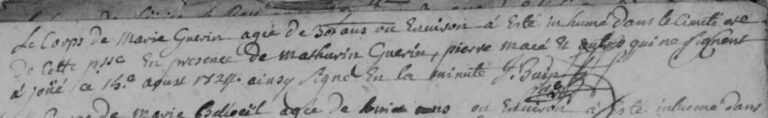 Le Corps de Marie Guerin agée de 30 ans ou Environ à Esté inhumé dans le Cimetiere
de Cette psse En presence de Mathurin Guerin, pierre macé & autres qui ne signent
à joüé ce 15e aoust 1724. ainsy signé En la minute
de Marie agée de ou Environ à Esté inhumé dans